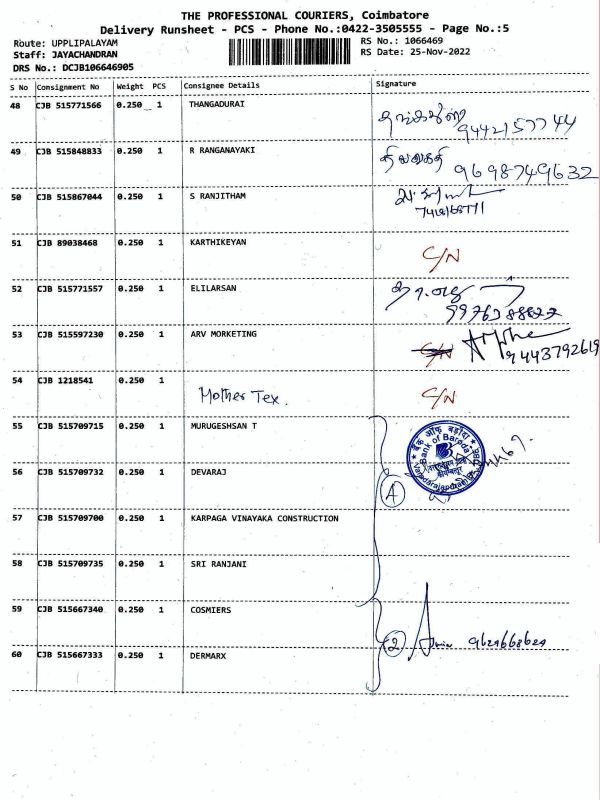 THE PROFESSIONAL COURIERS, Coimbatore
Delivery Runsheet - PCS - Phone No.:0422-3505555 - Page No.:5
Route: UPPLIPALAYAM
RS No.: 1066469
Staff: JAYACHANDRAN
RS Date: 25-Nov-2022
DRS No.: DCJB106646905
S No Consignment No Weight PCS Consignee Details Signature
48 CJB 515771566 0.250 1 THANGADURAI
9442157744
49 CJB 515848833 0.250 1 R RANGANAYAKI
9698749632
50 CJB 515867044 0.250 1 S RANJITHAM
51 CJB 89038468 0.250 1 KARTHIKEYAN
C/N
52 CJB 515771557 0.250 1 ELILARSAN
53 CJB 515597230 0.250 1 ARV MORKETING
C/N 9443792619
54 CJB 1218541 0.250 1
Mother Tex. C/N
55 CJB 515709715 0.250 1 MURUGESHSAN T
बैंक ऑफ़ बड़ौदा
Bank of Baroda
56 CJB 515709732 0.250 1 DEVARAJ
4
57 CJB 515709700 0.250 1 KARPAGA VINAYAKA CONSTRUCTION
58 CJB 515709735 0.250 1 SRI RANJANI
59 CJB 515667340 0.250 1 COSMIERS
2 9629668629
60 CJB 515667333 0.250 1 DERMARX